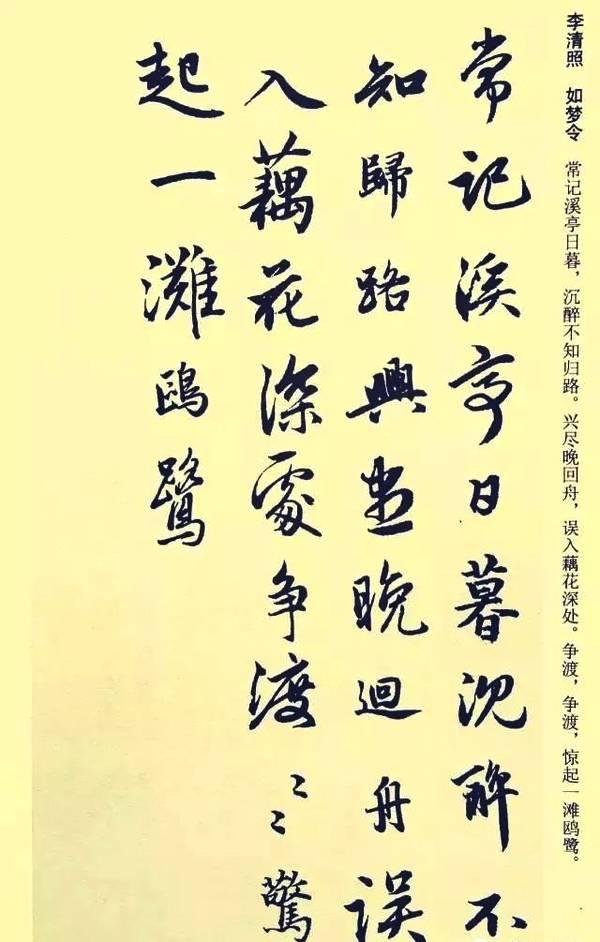 李清照 如梦令 常记溪亭日暮，沉醉不知归路。兴尽晚回舟，误入藕花深处。争渡，争渡，惊起一滩鸥鹭。
常记溪亭日暮沈醉不
知歸路興盡晚迴舟误
入藕花深處争渡〻〻驚
起一灘鷗鷺